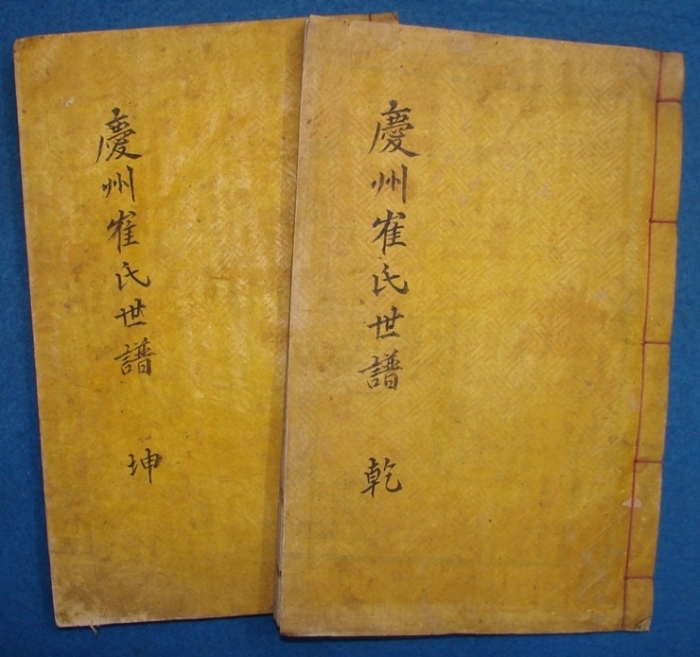 慶州崔氏世譜
乾
慶州崔氏世譜
坤